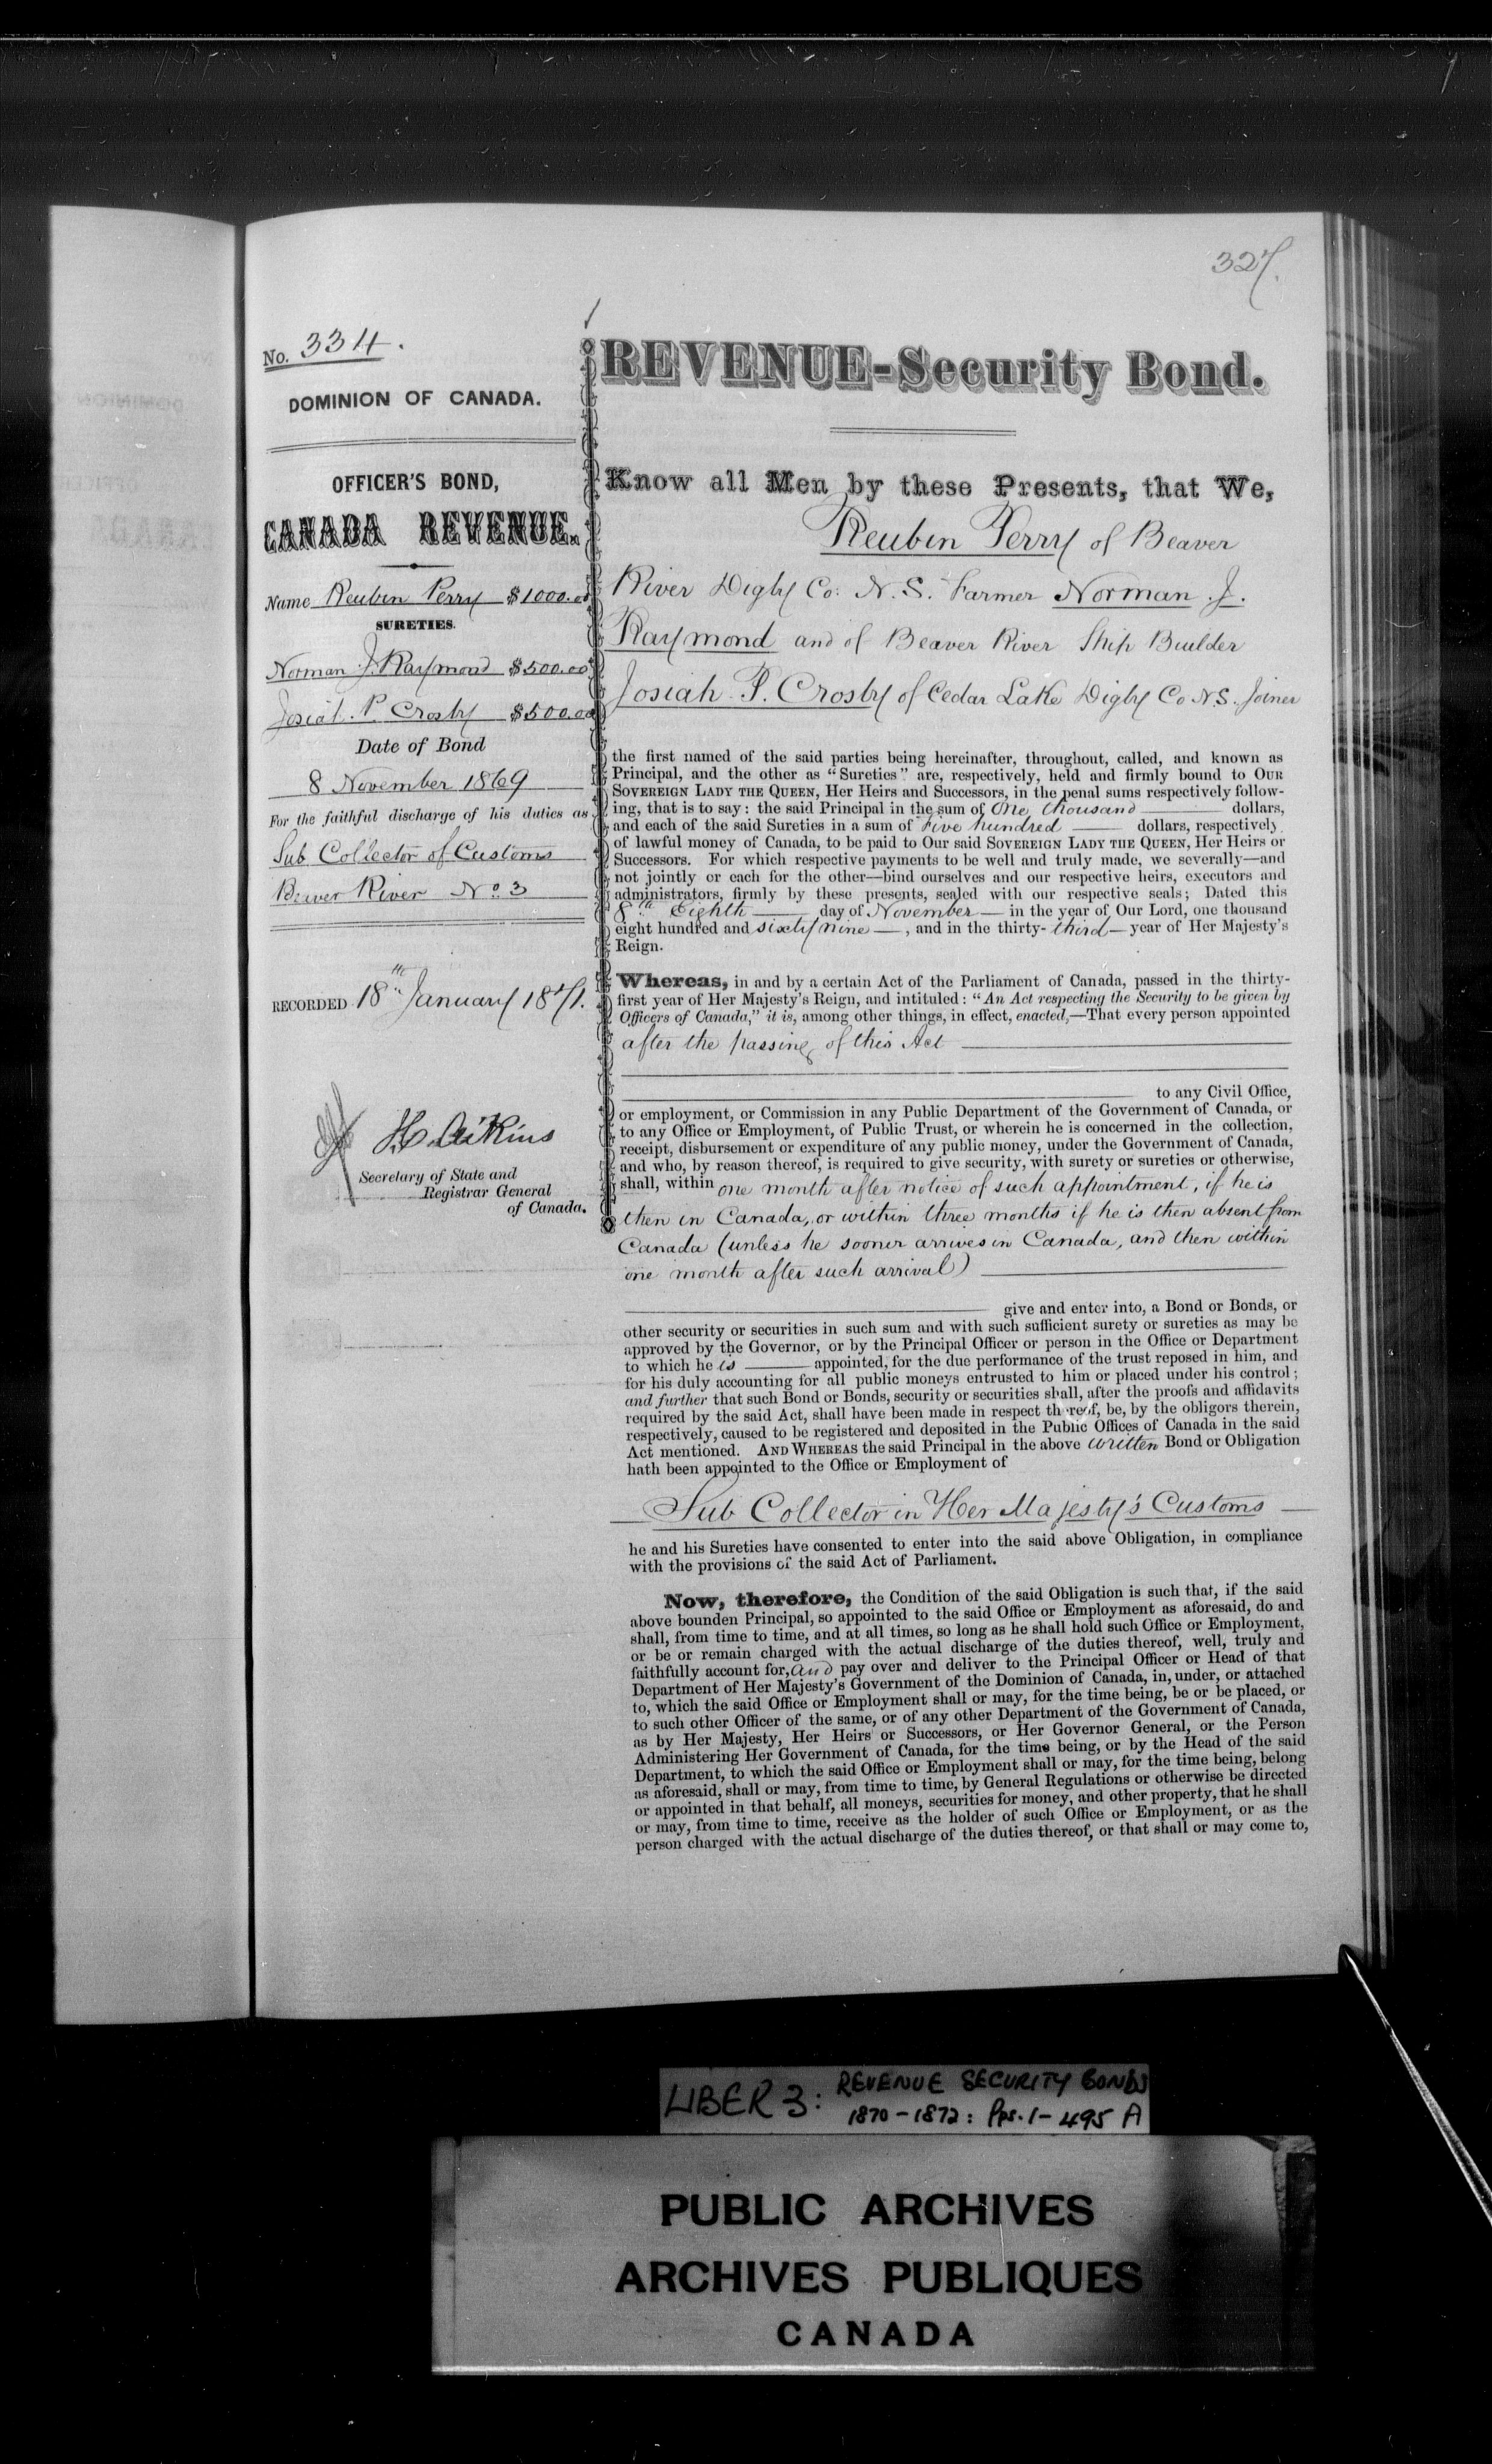 327.
No. 334.
DOMINION OF CANADA.
OFFICER'S BOND,
CANADA REVENUE.
Name Reuben Perry $1000.00
SURETIES.
Norman J. Raymond $500.00
Josiah P. Crosby $500.00
Date of Bond
8 November 1869
For the faithful discharge of his duties as
Sub Collector of Customs
Beaver River No. 3
RECORDED 18th January 1871.
Aikins
Secretary of State and
Registrar General
of Canada.
REVENUE-Security Bond.
Know all Men by these Presents, that We,
Reuben Perry of Beaver
River Digby Co: N.S. Farmer Norman J.
Raymond and of Beaver River Ship Builder
Josiah P. Crosby of Cedar Lake Digby Co N.S. Joiner
the first named of the said parties being hereinafter, throughout, called, and known as
Principal, and the other as "Sureties" are, respectively, held and firmly bound to OUR
SOVEREIGN LADY THE QUEEN, Her Heirs and Successors, in the penal sums respectively follow-
ing, that is to say: the said Principal in the sum of One thousand dollars,
and each of the said Sureties in a sum of Five hundred dollars, respectively
of lawful money of Canada, to be paid to Our said SOVEREIGN LADY THE QUEEN, Her Heirs or
Successors. For which respective payments to be well and truly made, we severally—and
not jointly or each for the other—bind ourselves and our respective heirs, executors and
administrators, firmly by these presents, sealed with our respective seals; Dated this
8th Eighth day of November in the year of Our Lord, one thousand
eight hundred and sixty nine, and in the thirty-third year of Her Majesty's
Reign.
Whereas, in and by a certain Act of the Parliament of Canada, passed in the thirty-
first year of Her Majesty's Reign, and intituled: "An Act respecting the Security to be given by
Officers of Canada," it is, among other things, in effect, enacted,—That every person appointed
after the passing of this Act
to any Civil Office,
or employment, or Commission in any Public Department of the Government of Canada, or
to any Office or Employment, of Public Trust, or wherein he is concerned in the collection,
receipt, disbursement or expenditure of any public money, under the Government of Canada,
and who, by reason thereof, is required to give security, with surety or sureties or otherwise,
shall, within one month after notice of such appointment, if he is
then in Canada, or within three months if he is then absent from
Canada (unless he sooner arrives in Canada, and then within
one month after such arrival)
give and enter into, a Bond or Bonds, or
other security or securities in such sum and with such sufficient surety or sureties as may be
approved by the Governor, or by the Principal Officer or person in the Office or Department
to which he is appointed, for the due performance of the trust reposed in him, and
for his duly accounting for all public moneys entrusted to him or placed under his control;
and further that such Bond or Bonds, security or securities shall, after the proofs and affidavits
required by the said Act, shall have been made in respect thereof, be, by the obligors therein,
respectively, caused to be registered and deposited in the Public Offices of Canada in the said
Act mentioned. AND WHEREAS the said Principal in the above written Bond or Obligation
hath been appointed to the Office or Employment of
Sub Collector in Her Majesty's Customs
he and his Sureties have consented to enter into the said above Obligation, in compliance
with the provisions of the said Act of Parliament.
Now, therefore, the Condition of the said Obligation is such that, if the said
above bounden Principal, so appointed to the said Office or Employment as aforesaid, do and
shall, from time to time, and at all times, so long as he shall hold such Office or Employment,
or be or remain charged with the actual discharge of the duties thereof, well, truly and
faithfully account for, and pay over and deliver to the Principal Officer or Head of that
Department of Her Majesty's Government of the Dominion of Canada, in, under, or attached
to, which the said Office or Employment shall or may, for the time being, be or be placed, or
to such other Officer of the same, or of any other Department of the Government of Canada,
as by Her Majesty, Her Heirs or Successors, or Her Governor General, or the Person
Administering Her Government of Canada, for the time being, or by the Head of the said
Department, to which the said Office or Employment shall or may, for the time being, belong
as aforesaid, shall or may, from time to time, by General Regulations or otherwise be directed
or appointed in that behalf, all moneys, securities for money, and other property, that he shall
or may, from time to time, receive as the holder of such Office or Employment, or as the
person charged with the actual discharge of the duties thereof, or that shall or may come to,
LIBER 3: REVENUE SECURITY BONDS
1870-1872: Pps. 1-495 A
PUBLIC ARCHIVES
ARCHIVES PUBLIQUES
CANADA